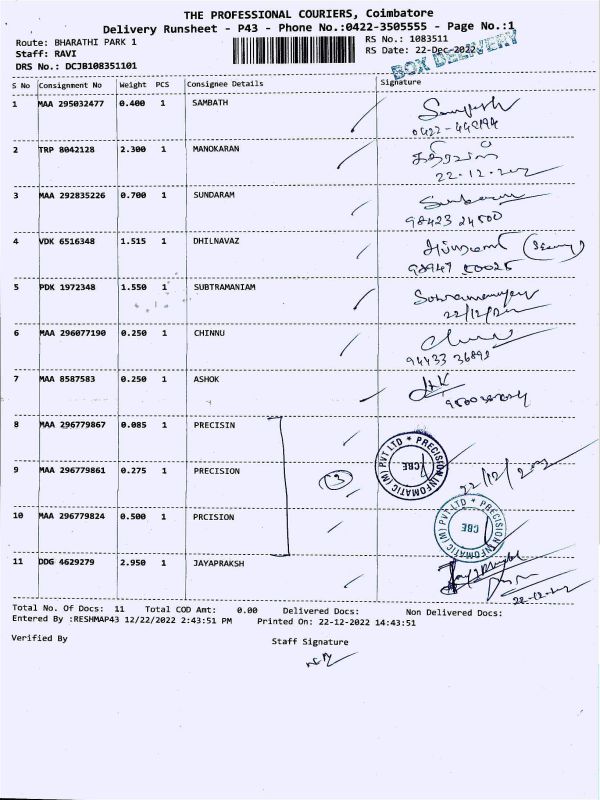 THE PROFESSIONAL COURIERS, Coimbatore
Delivery Runsheet - P43 - Phone No.:0422-3505555 - Page No.:1
Route: BHARATHI PARK 1 RS No.: 1083511
Staff: RAVI RS Date: 22-Dec-2022
DRS No.: DCJB108351101 BOX DELIVERY
S No Consignment No Weight PCS Consignee Details Signature
1 MAA 295032477 0.400 1 SAMBATH
2 TRP 8042128 2.300 1 MANOKARAN
22-12-202
3 MAA 292835226 0.700 1 SUNDARAM
98423 24500
4 VDK 6516348 1.515 1 DHILNAVAZ
5 PDK 1972348 1.550 1 SUBTRAMANIAM
6 MAA 296077190 0.250 1 CHINNU
7 MAA 8587583 0.250 1 ASHOK
8 MAA 296779867 0.085 1 PRECISIN
PRECISION INFOMATIC (M) PVT LTD * CBE
9 MAA 296779861 0.275 1 PRECISION 3
22/12/202
10 MAA 296779824 0.500 1 PRCISION
PRECISION INFOMATIC (M) PVT LTD * CBE
11 DDG 4629279 2.950 1 JAYAPRAKSH
22-12-202
Total No. Of Docs: 11 Total COD Amt: 0.00 Delivered Docs: Non Delivered Docs:
Entered By :RESHMAP43 12/22/2022 2:43:51 PM Printed On: 22-12-2022 14:43:51
Verified By Staff Signature